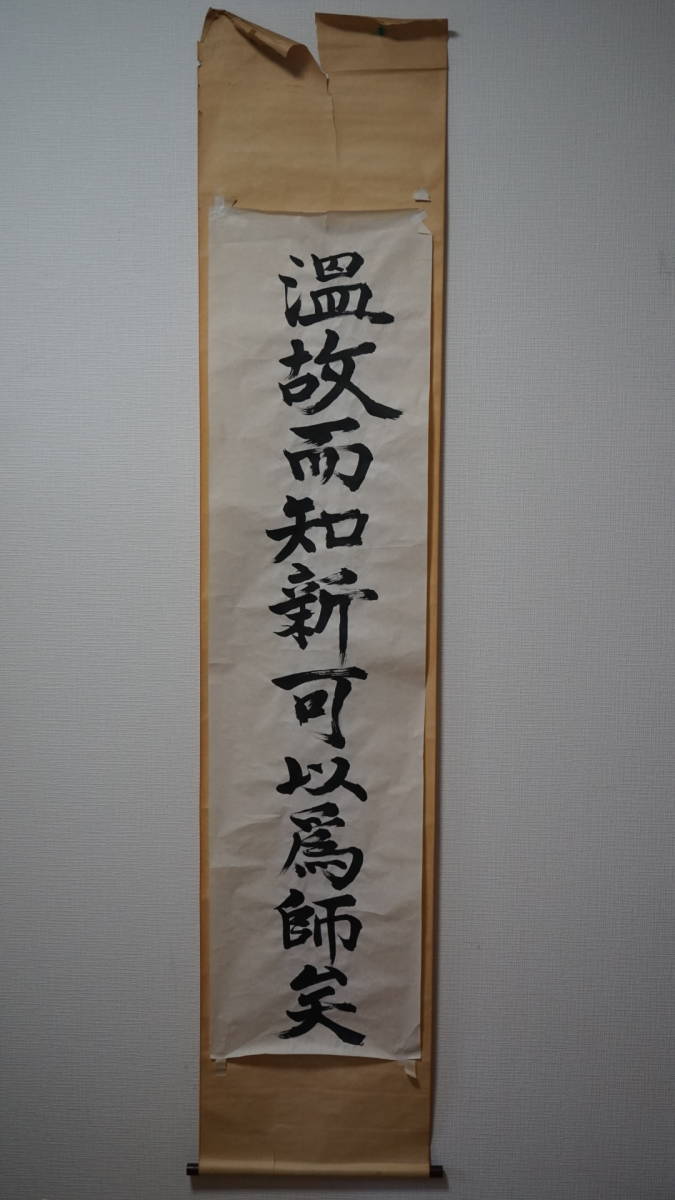 溫故而知新可以爲師矣